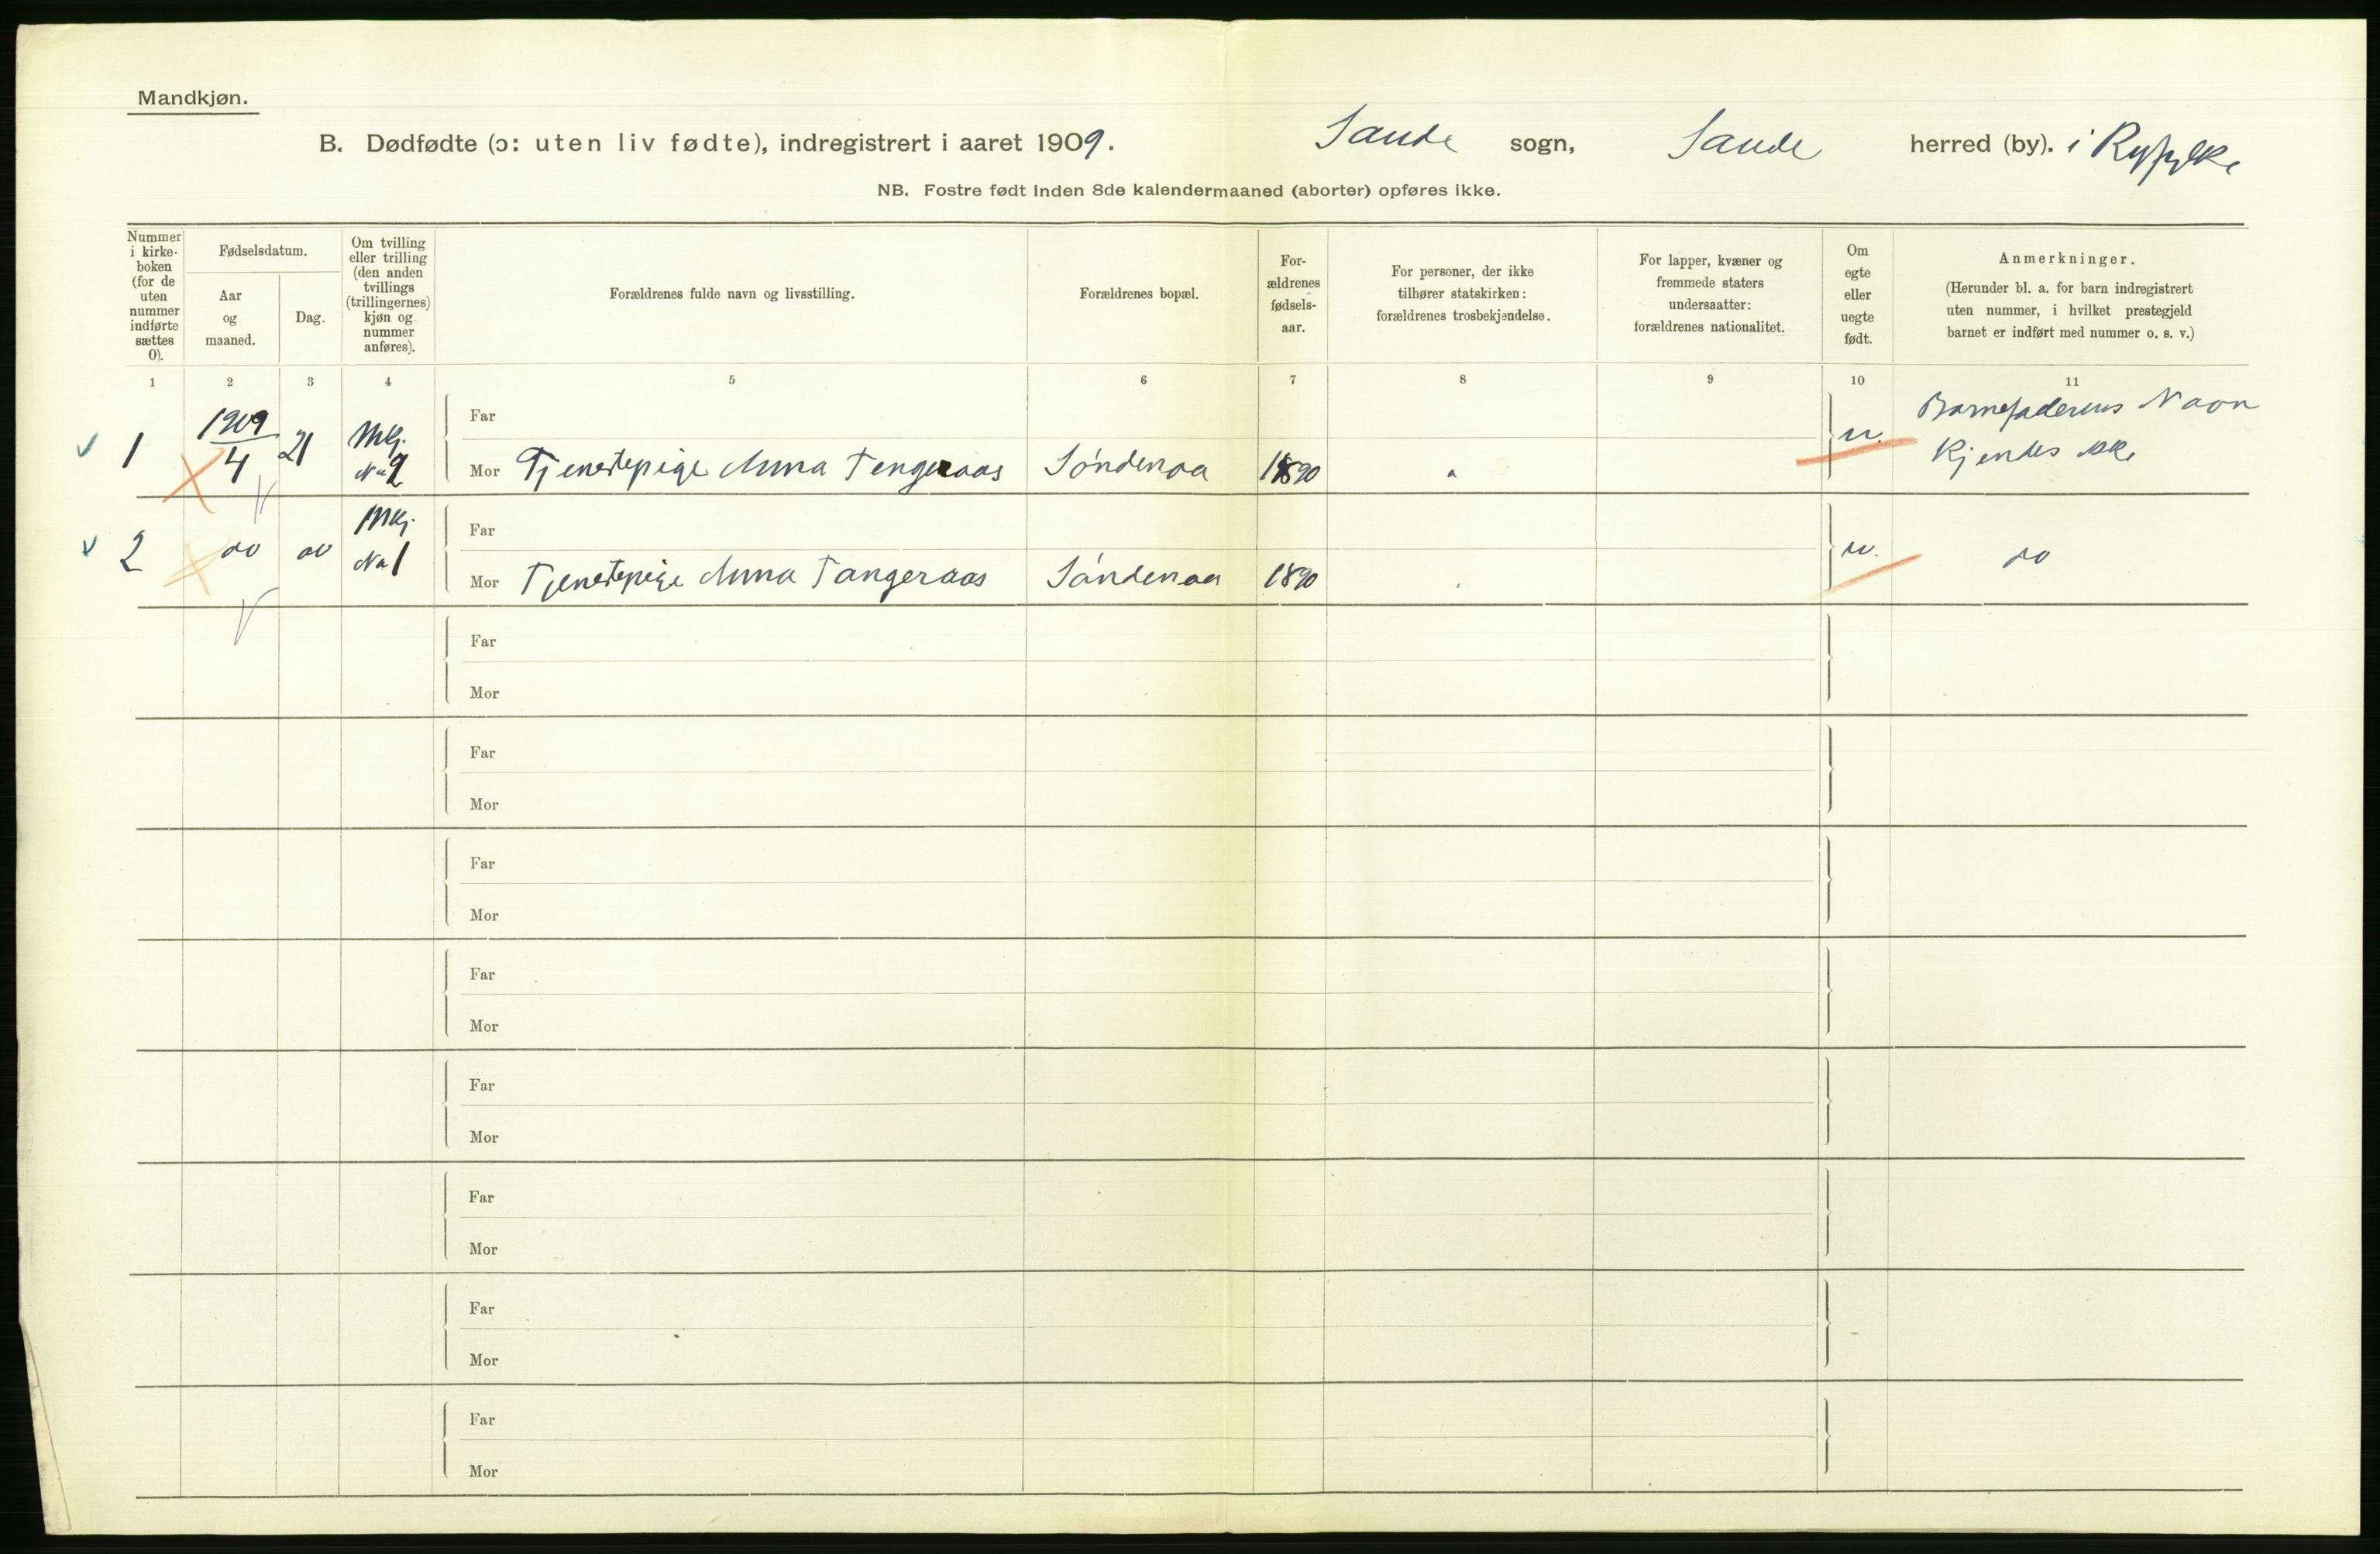 Mandkjøn.
B. Dødfødte (ɔ: uten liv fødte), indregistrert i aaret 1909. Saude sogn, Saude herred (by). i Ryfylke
NB. Fostre født inden 8de kalendermaaned (aborter) opføres ikke.
Nummer i kirke-boken (for de uten nummer indførte sættes 0).
Fødselsdatum.
Aar og maaned.
Dag.
Om tvilling eller trilling (den anden tvillings (trillingernes) kjøn og nummer anføres).
Forældrenes fulde navn og livsstilling.
Forældrenes bopæl.
For-ældrenes fødsels-aar.
For personer, der ikke tilhører statskirken: forældrenes trosbekjendelse.
For lapper, kvæner og fremmede staters undersaatter: forældrenes nationalitet.
Om egte eller uegte født.
Anmerkninger.
(Herunder bl. a. for barn indregistrert uten nummer, i hvilket prestegjeld barnet er indført med nummer o. s. v.)
1 2 3 4 5 6 7 8 9 10 11
1 1909 4 21 Mkj. No 2
Far
Mor Tjenestepige Anna Tengeraas Söndenaa 1890 u. Barnefaderens Navn
kjendes ikke
2 do do Mkj. No 1
Far
Mor Tjenestepige Anna Tangeraas Söndenaa 1890 u. do
Far
Mor
Far
Mor
Far
Mor
Far
Mor
Far
Mor
Far
Mor
Far
Mor
Far
Mor